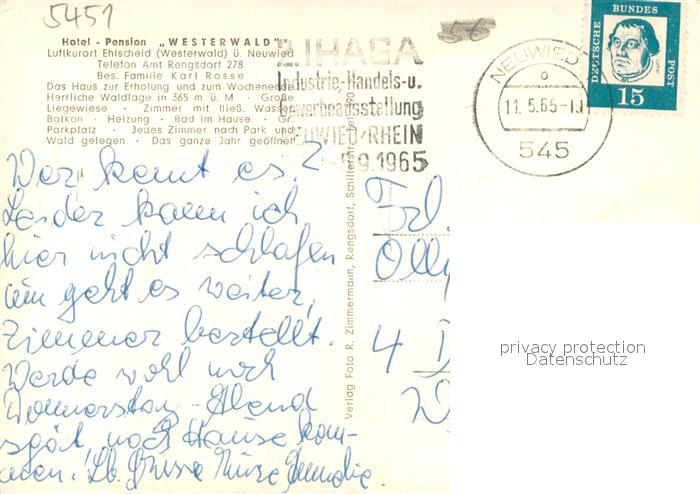 5451
Hotel - Pension „WESTERWALD"
Luftkurort Ehlscheid (Westerwald) ü. Neuwied
Telefon Amt Rengsdorf 278
Bes. Familie Karl Rosse
Das Haus zur Erholung und zum Wochenende
Herrliche Waldlage in 365 m ü. M - Große
Liegewiese - Zimmer mit fließ. Wasser
Balkon - Heizung - Bad im Hause - Gr.
Parkplatz - Jedes Zimmer nach Park und
Wald gelegen - Das ganze Jahr geöffnet
2. IHAGA
Industrie-Handels-u.
Gewerbeausstellung
NEUWIED/RHEIN
9.1965
NEUWIED
11.5.65-
545
DEUTSCHE BUNDES POST
15
Wer kennt es?
Leider kann ich
hier nicht schlafen
nun geht es weiter,
Zimmer bestellt.
Werde wohl noch
Donnerstag-Abend
spät nach Hause kom-
men. Lb. Grüsse
Verlag Foto R. Zimmermann, Rengsdorf,
Frl.
Olly
4
privacy protection
Datenschutz